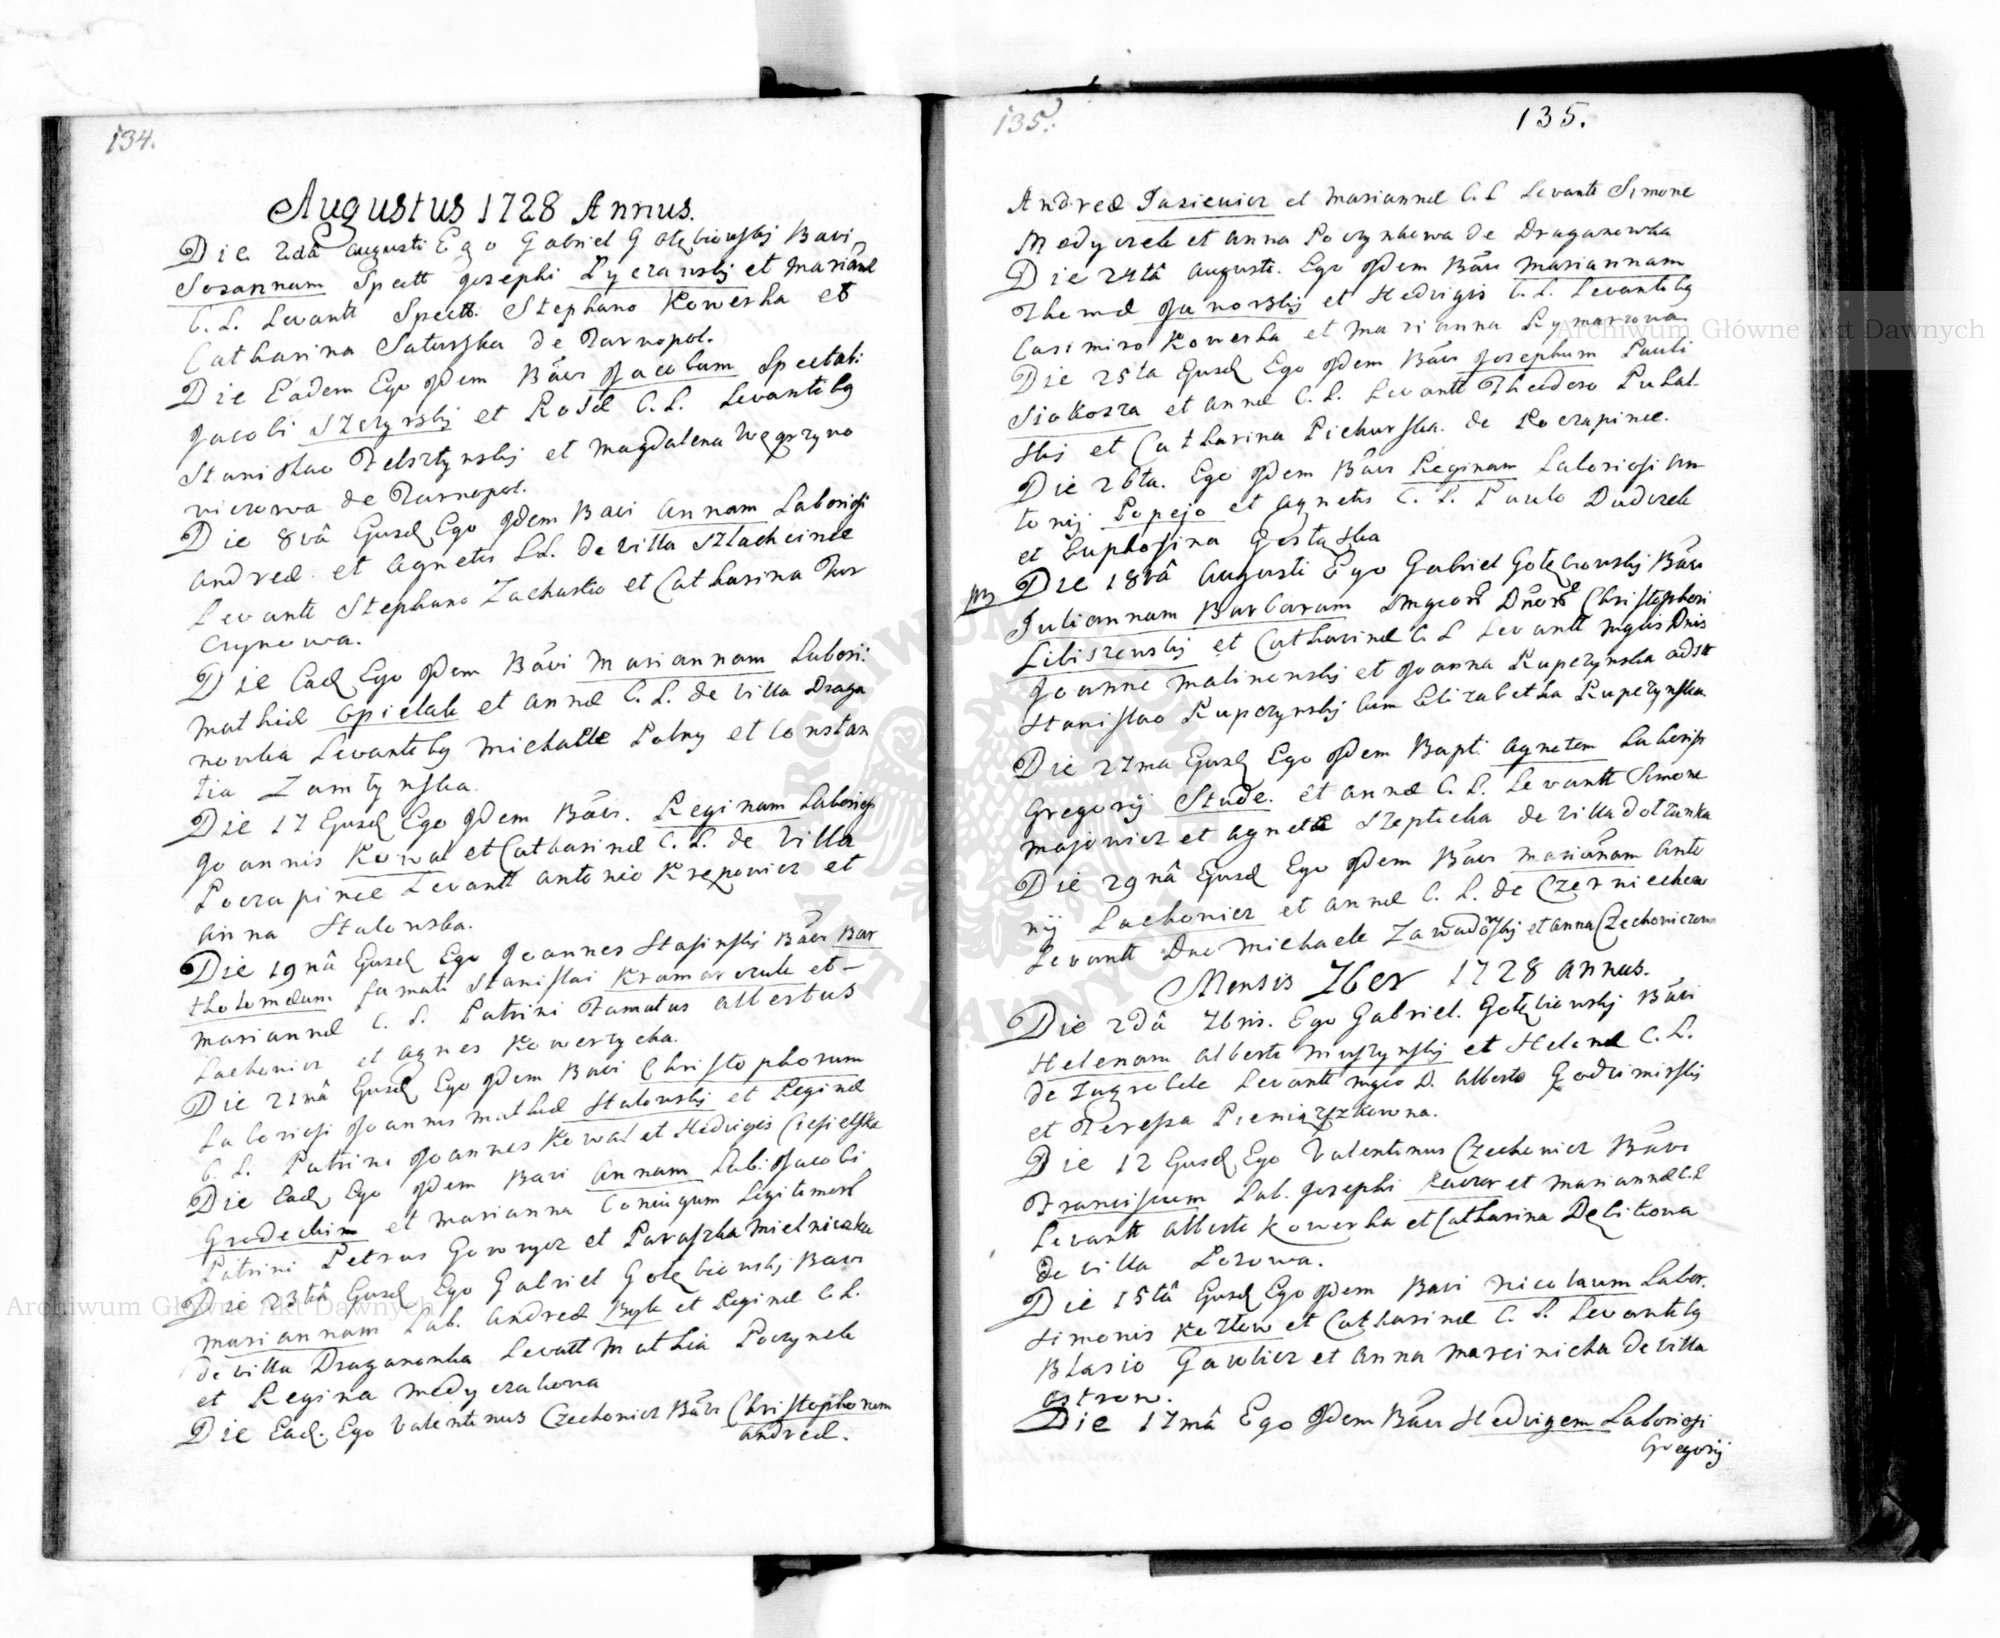 134.
Augustus 1728 Annus.
Die 2dâ Augusti Ego Gabriel Gołębiowskj Bavi
Sosannam Spectt Josephi Pyczawskj et Mariañæ
C. L. Levantt Spectt. Stephano Kowerka et
Catharina Saturska de Tarnopol.
Die Eadem Ego Idem Bãvi Jacobum Spectabi
Jacobi Szczyrskj et Rosæ C. L. Levantibg
Stanislao Felsztynskj et Magdalena Węgrzyno
viczowa de Tarnopol.
Die 8vâ Eiusd Ego Idem Bavi Annam Laboriosi
Andreæ et Agnetis LL. de villa Szlachcince
Levantt Stephano Zacharko et Catharina Tur
czynowa.
Die Ead Ego Idem Bãvi Mariannam Labori:
Mathiæ Opielak et Annæ C. L. de villa Draga
nowka Levantibg Michaele Polny et Constan
tia Zamtynska.
Die 17 Eiusd Ego Idem Bãvi. Reginam Laboriosi
Joannis Kowal et Catharinæ C. L. de Villa
Poczapince Levantt Antonio Krępowicz et
Anna Stalowska.
Die 19nâ Eiusd Ego Joannes Stasinskj Bãvi Bar
tholomæum famati Stanislai Kramarczuk et –
Mariannæ C. L. Patrini Famatus Albertus
Lachowicz et Agnes Kowerzycha.
Die 21mâ Eiusd Ego Idem Bavi Christophorum
Laboriosi Joannis Mathiæ Stalowskj et Reginæ
C. L. Patrini Joannes Kowal et Hedvigis Ciesielska
Die Ead Ego Idem Bavi Annam Labi Jacobi
Grodeckim et Marianna Coniugum Legitimorũ
Patrini Petrus Goworycz et Paraszka Mielniczka
Die 23tiâ Eiusd Ego Gabriel Gołębiowskj Bavi
Mariannam Lab. Andreæ Byk et Reginæ C. L.
de villa Draganowka Levantt Mathia Poczynek
et Regina Medyczakowa
Die Ead. Ego Valentinus Czechowicz Bãvi Christophorum
Andreæ.
135.
135.
Andreæ Jasiewicz et Mariannæ C. L Levantt Simone
Medyczek et Anna Poczynkowa de Draganowka
Die 24tâ Augusti. Ego Idem Bãvi Mariannam
Thomæ Janowskj et Hedvigis C. L. Levantibg
Casimiro Kowerka et Marianna Rymarzowa
Die 25ta Eiusd Ego Idem Bãvi Josephum Pauli
Siokosza et Annæ C. L. Levantt Theodoro Puhal
skj et Catharina Piekurska. de Poczapince.
Die 26ta. Ego Idem Bãvi Reginam Laboriosi An
tonij Popejo et Agnetis C. L. Paulo Dudczek
et Euphosina Gęstąska
Die 18vâ Augusti Ego Gabriel Gołębiowskj Bãvi
Juliannam Barbaram Christophori
Libiszewskj et Catharinæ C L Levantt Mgcis Dnis
Joanne Malinowskj et Joanna Kupczynska adstt
Stanislao Kupczynskj cum Elizabetha Kupczynska
Die 27ma Eiusd Ego Idem Bapt. Agnetem Laboriosi
Gregorij Stude. et Annæ C. L. Levantt Simone
Majowicz et Agnete Szepticka de villa Dołzanka
Die 29nâ Eiusd Ego Idem Bãvi Mariañam Anto
nij Lachowicz et Annæ C. L. de Czerniechow
Levantt Dno Michaele Zawadowskj et Anna Czechoviczowa
Mensis 7ber 1728 Annus.
Die 2dâ 7bris. Ego Gabriel. Gołębiowskj Bãvi
Helenam Alberti Muszynskj et Helenæ C. L.
de Zagrobele Levantt Mgco D. Alberto Godzimirskj
et Teressa Pieniążkowna.
Die 12 Eiusd Ego Valentinus Czechowicz Bãvi
Franciscum Lab. Josephi et Mariannæ C.L
Levantt Alberto Kowerka et Catharina Debitkowa
de villa Pozowa.
Die 15tâ Eiusd Ego Idem Bavi Nicolaum Labor.
Simonis Kozłow et Catharinæ C. L. Levantibg
Blasio Gawlicz et Anna Marcinicha de villa
Ostrow.
Die 17mâ Ego Idem Bãvi Hedvigem Laboriosi
Gregorij
Archiwum Główne Akt Dawnych
Archiwum Główne Akt Dawnych
ARCHIWUM GŁÓWNE AKT DAWNYCH